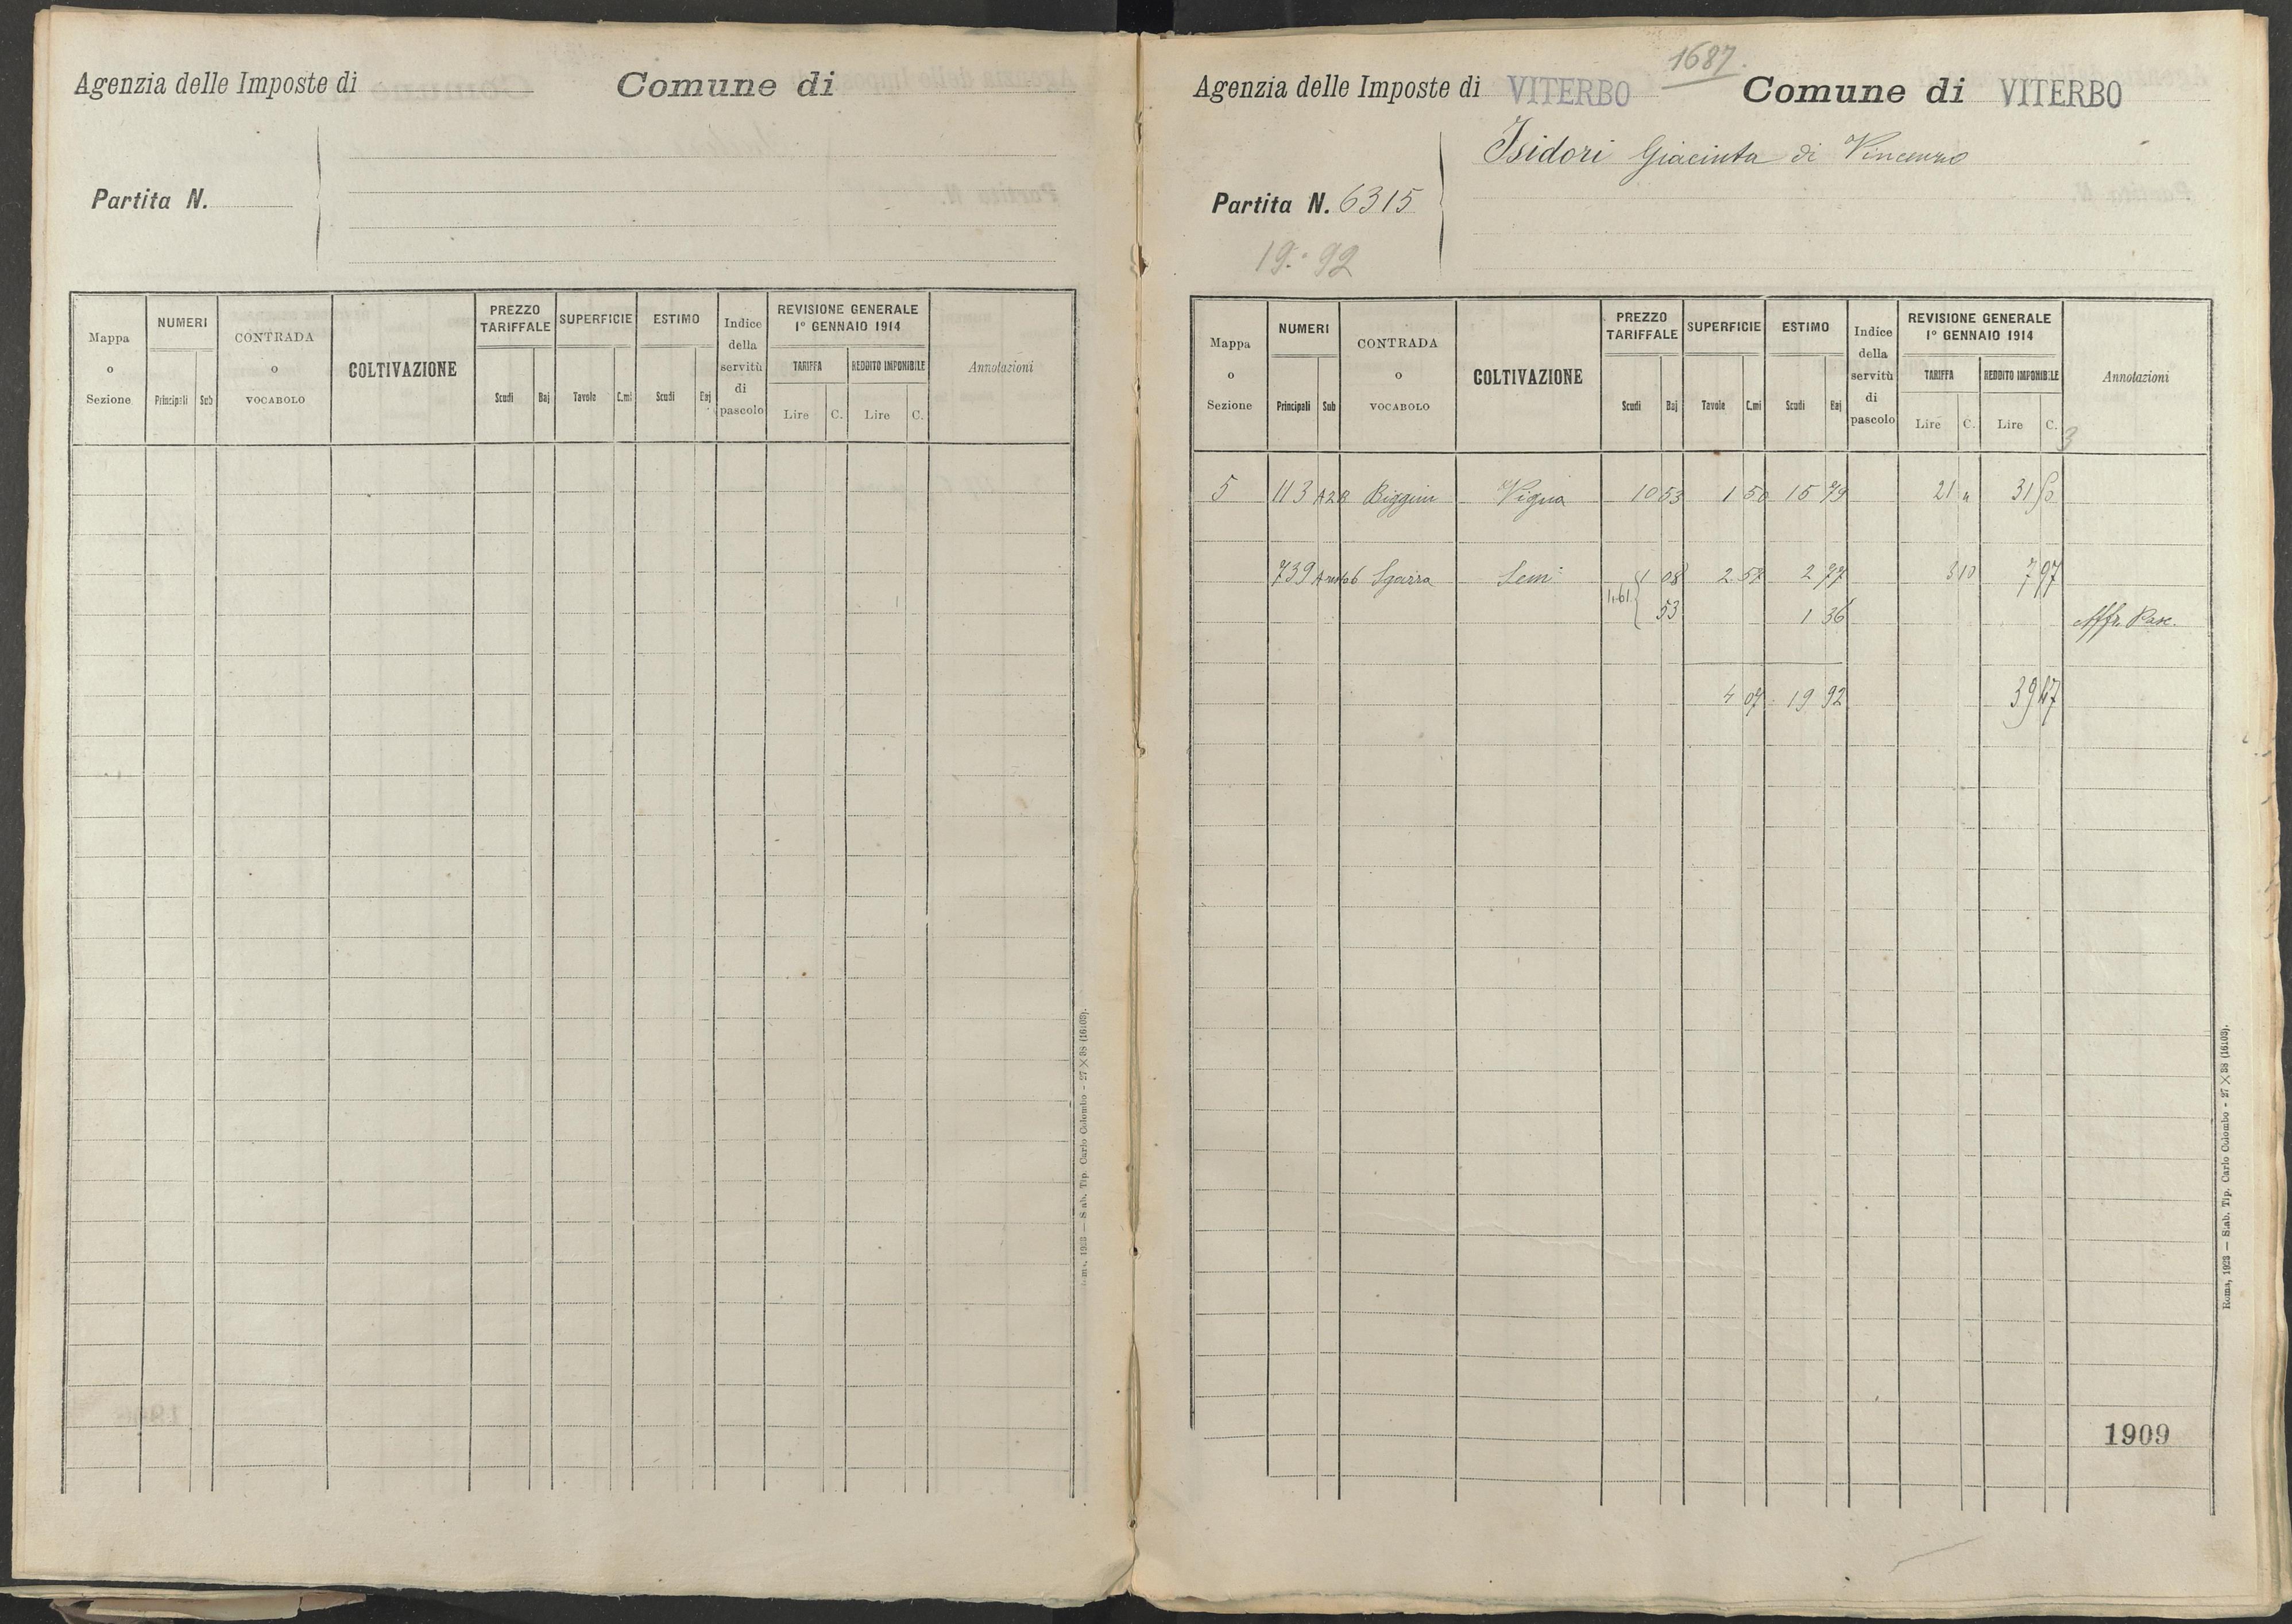 Agenzia delle Imposte di Comune di
Partita N.
Mappa o Sezione
NUMERI
Principali Sub
CONTRADA o VOCABOLO
COLTIVAZIONE
PREZZO TARIFFALE
Scudi Baj
SUPERFICIE
Tavole C.mi
ESTIMO
Scudi Baj
Indice della servitù di pascolo
REVISIONE GENERALE 1° GENNAIO 1914
TARIFFA
Lire C.
REDDITO IMPONIBILE
Lire C.
Annotazioni
Roma, 1923 — Stab. Tip. Carlo Colombo - 27 X 38 (16103).
1687.
Agenzia delle Imposte di VITERBO Comune di VITERBO
Isidori Giacinta di Vincenzo
Partita N. 6315
19.92
Mappa o Sezione
NUMERI
Principali Sub
CONTRADA o VOCABOLO
COLTIVAZIONE
PREZZO TARIFFALE
Scudi Baj
SUPERFICIE
Tavole C.mi
ESTIMO
Scudi Baj
Indice della servitù di pascolo
REVISIONE GENERALE 1° GENNAIO 1914
TARIFFA
Lire C.
REDDITO IMPONIBILE
Lire C.
Annotazioni
3
5 113 A2B Vigna 10 53 1 50 15 79 21 " 31 50
739 Sem 1 08 2 57 2 77 3 10 7 97
1,61 53 1 36 Affr. Pasc.
4 07 19 92 39 47
1909
Roma, 1923 — Stab. Tip. Carlo Colombo - 27 X 38 (16103).